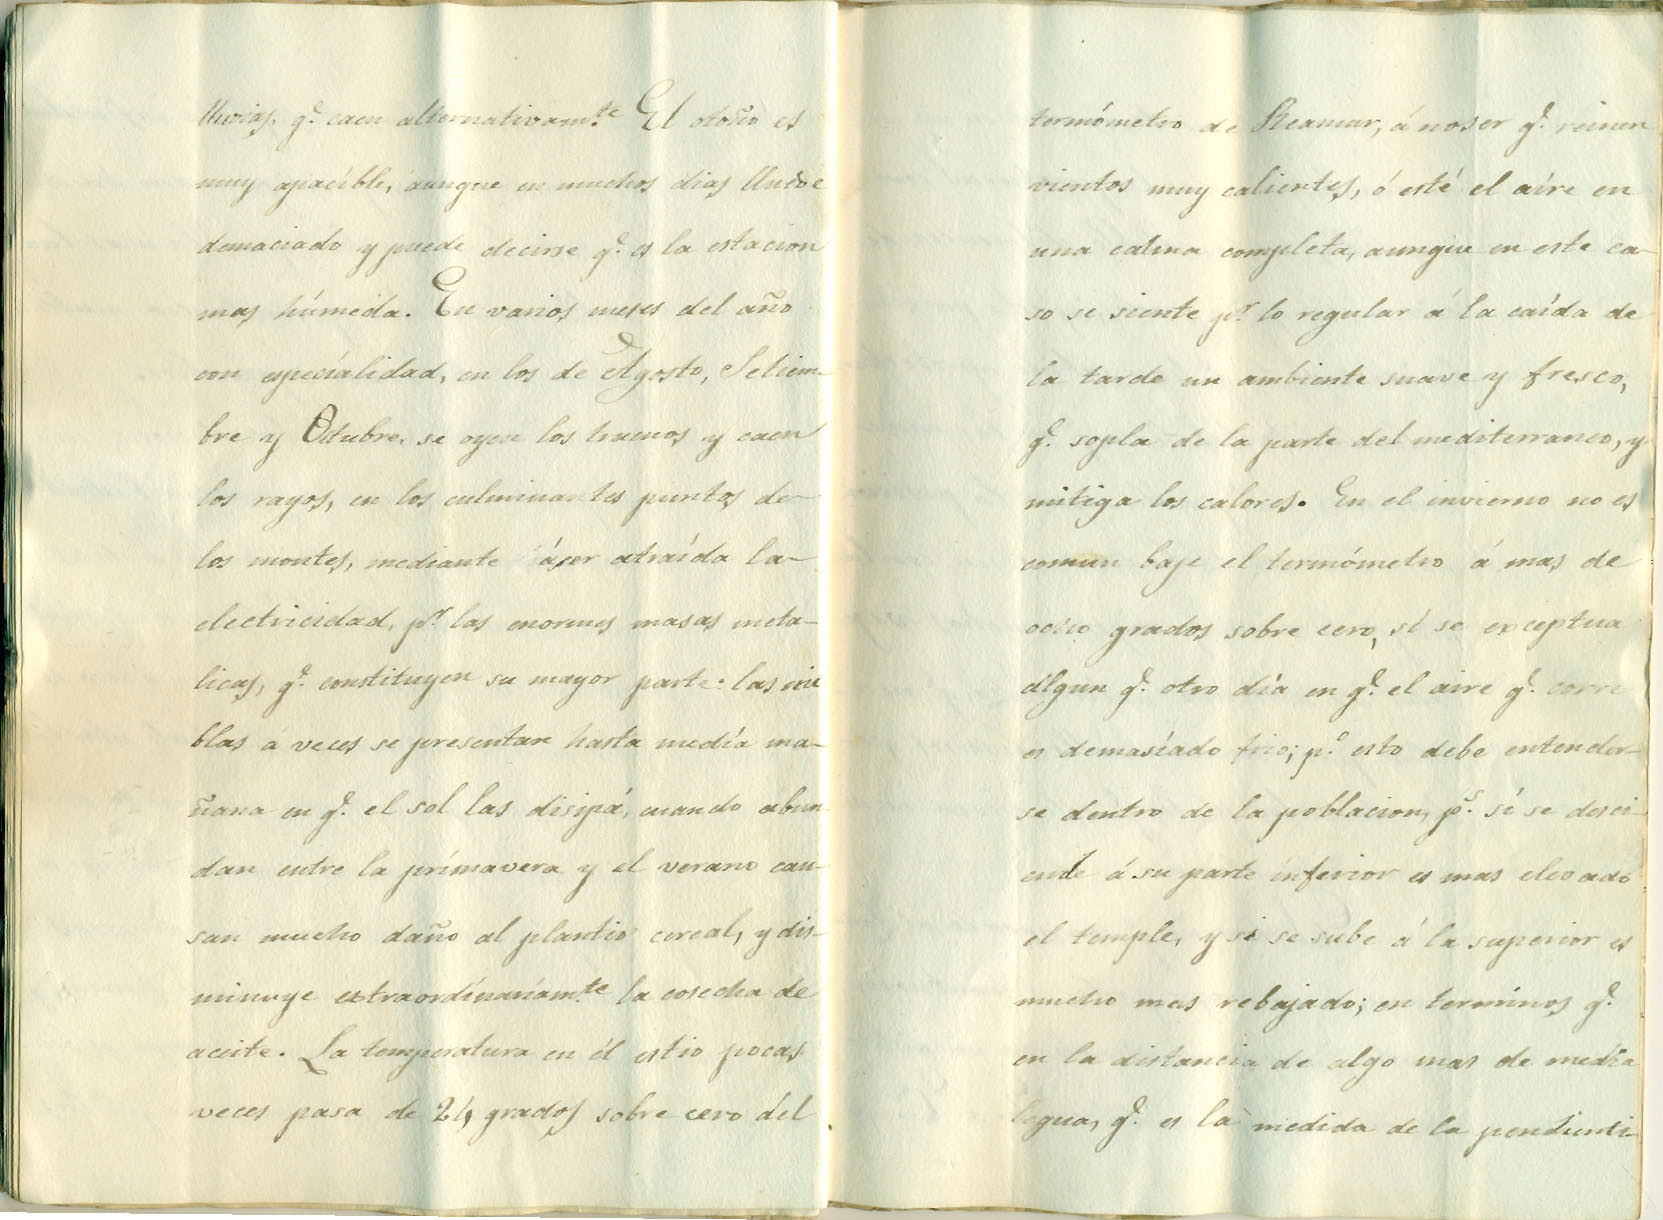 lluvias, q.e caen alternativam.te El otoño es
muy apacíble, aunque en muchos dias llueve
demaciado y puede decirse q.e es la estacion
mas húmeda. En varios meses del año
con especíalidad, en los de Agosto, Setiem-
bre y Octubre, se oyen los truenos y caen
los rayos, en los culminantes puntos de
los montes, mediante á ser atraída la
electricidad, p.r las enormes masas meta-
licas, q.e constituyen su mayor parte: las nie
blas á veces se presentan hasta medía ma-
ñana en q.e el sol las disipá, cuando abun-
dan entre la prímavera y el verano cau-
san mucho daño al plantio cereal, y dis-
minuye estraordínaríam.te la cosecha de
aceite. La temperatura en él estio pocas
veces pasa de 24 grados sobre cero del
termómetro de Reamur, á no ser q.e reinen
vientos muy calientes, ó esté el aíre en
una calma completa, aunque en este ca-
so se siente p.r lo regular á la caída de
la tarde un ambiente suave y fresco,
q.e sopla de la parte del mediterraneo, y
mitiga los calores. En el invierno no es
comun baje el termómetro á mas de
ocho grados sobre cero, sí se exceptua
álgun q.e otro día en q.e el aire q.e corre
es demasíado frio; p.o esto debe entender-
se dentro de la poblacion, p.s sí se desci-
ende á su parte ínferior es mas elevado
el temple, y si se sube á la superior es
mucho mas rebajado; en termínos q.e
en la distancia de algo mas de media
legua, q.e es la medida de la pendienti-